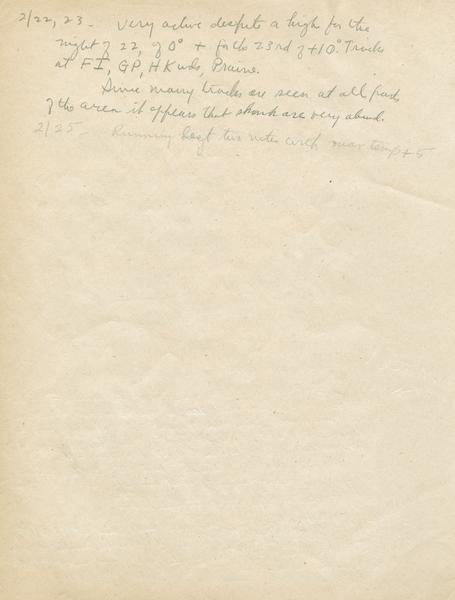 2/22, 23 - Very active despite a high for the
night of 22, of 0° + for the 23rd of +10°. Tracks
at FI, GP, HKwds, Prairie.
Since many tracks are seen at all parts
of the area it appears that skunk are very abund.
2/25 Running last two nites max temp + 5